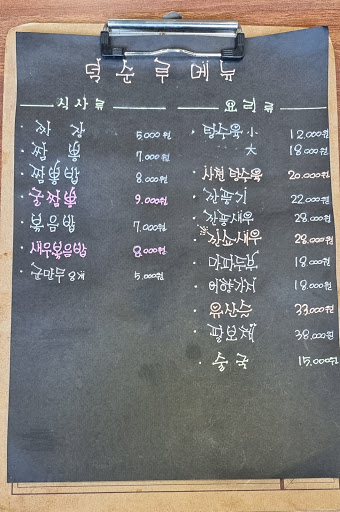 덕순루 메뉴
식사류
짜장 5,000원
짬뽕 7,000원
짬뽕밥 8,000원
굴짬뽕 9,000원
볶음밥 7,000원
새우볶음밥 8,000원
군만두 8개 5,000원
요리류
탕수육 小 12,000원
大 18,000원
사천탕수육 20,000원
깐풍기 22,000원
깐풍새우 28,000원
※ 깐쇼새우 28,000원
마파두부 18,000원
어향가지 18,000원
유산슬 33,000원
팔보채 38,000원
술국 15,000원